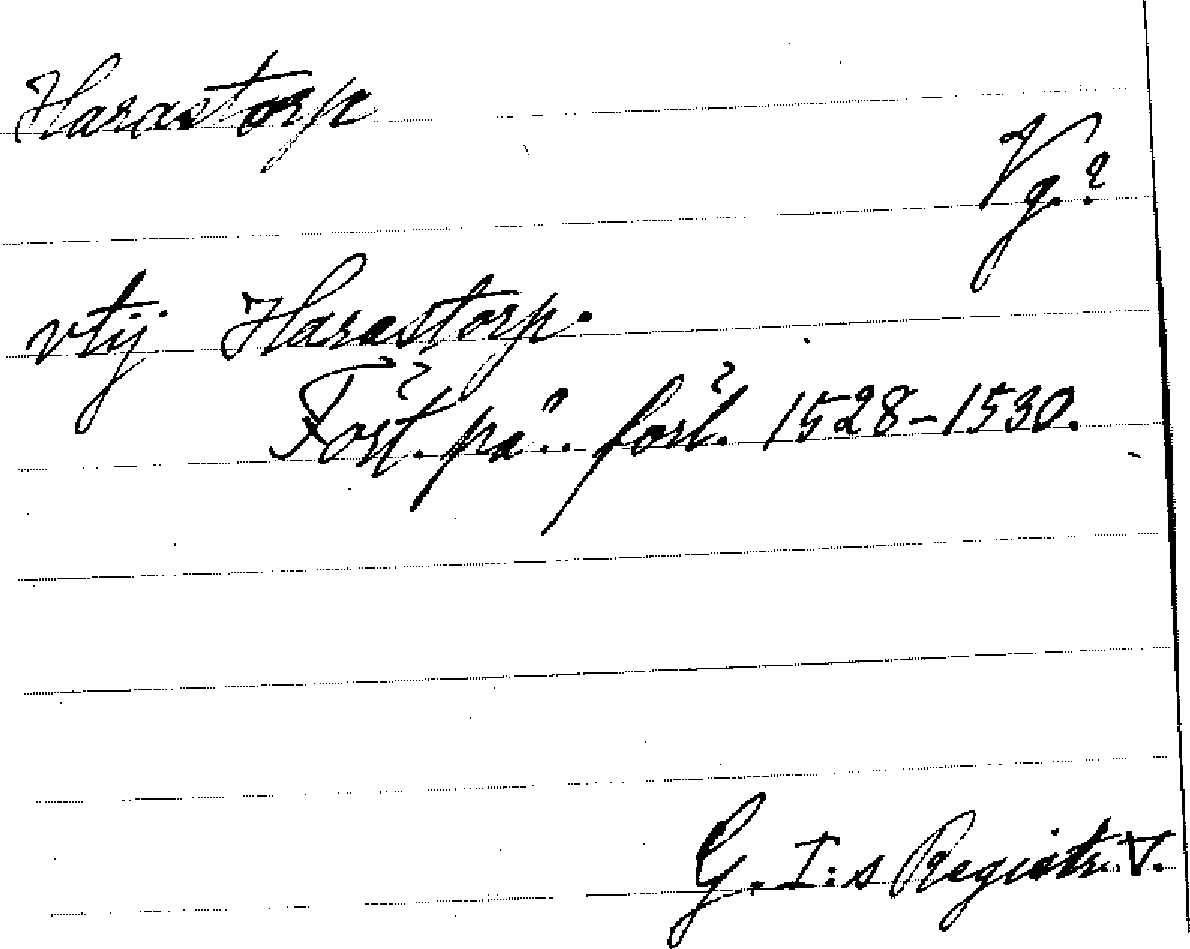 Harastorp
Vg.?
vtij Harastorp.
Fört. på.. förl. 1528-1530.
G. I:s Registr. V.